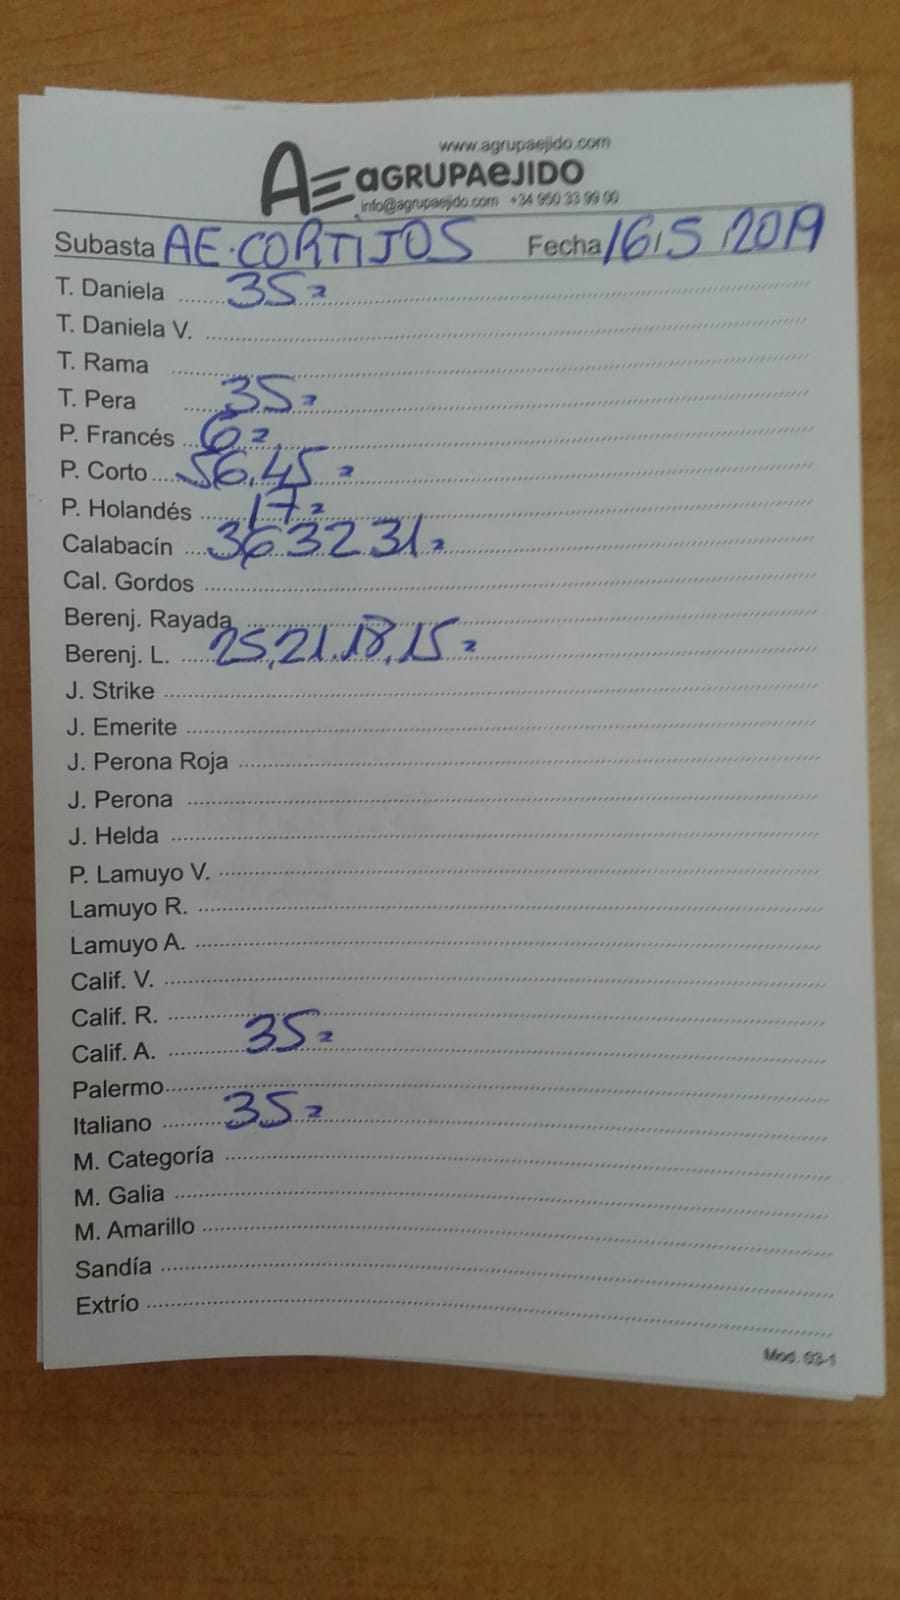 www.agrupaejido.com
AE AGRUPAEJIDO
info@agrupaejido.com +34 950 33 99 00
Subasta AE.CORTIJOS Fecha 16/5/2019
T. Daniela 35=
T. Daniela V.
T. Rama
T. Pera 35=
P. Francés 6=
P. Corto 56,45=
P. Holandés 17=
Calabacín 36 32 31=
Cal. Gordos
Berenj. Rayada
Berenj. L. 25,21,18,15=
J. Strike
J. Emerite
J. Perona Roja
J. Perona
J. Helda
P. Lamuyo V.
Lamuyo R.
Lamuyo A.
Calif. V.
Calif. R.
Calif. A. 35=
Palermo
Italiano 35=
M. Categoría
M. Galia
M. Amarillo
Sandía
Extrío
Mod. 03-1